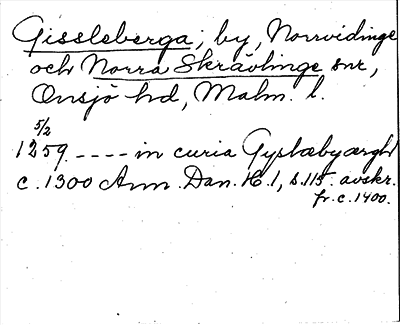 Gissleberga; by, Norrvidinge
och Norra Skrävlinge snr,
Onsjö hd, Malm. l.
5/2
1259 ---- in curia Gyslæbyærghl
c. 1300 Ann. Dan. H. 1, s. 115. avskr.
fr. c. 1400.